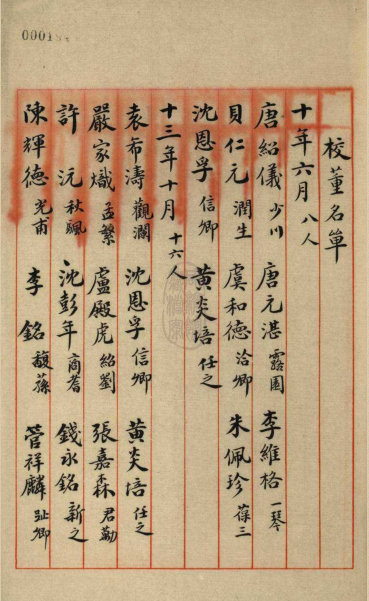 校董名單
十年六月 八人
唐紹儀 少川 唐元湛 露園 李維格 一琴
貝仁元 潤生 虞和德 洽卿 朱佩珍 葆三
沈恩孚 信卿 黃炎培 任之
十三年十月 十六人
袁希濤 觀瀾 沈恩孚 信卿 黃炎培 任之
嚴家熾 孟繁 盧殿虎 紹劉 張嘉森 君勱
許沅 秋飆 沈彭年 商耆 錢永銘 新之
陳輝德 光甫 李銘 馥蓀 管祥麟 趾卿